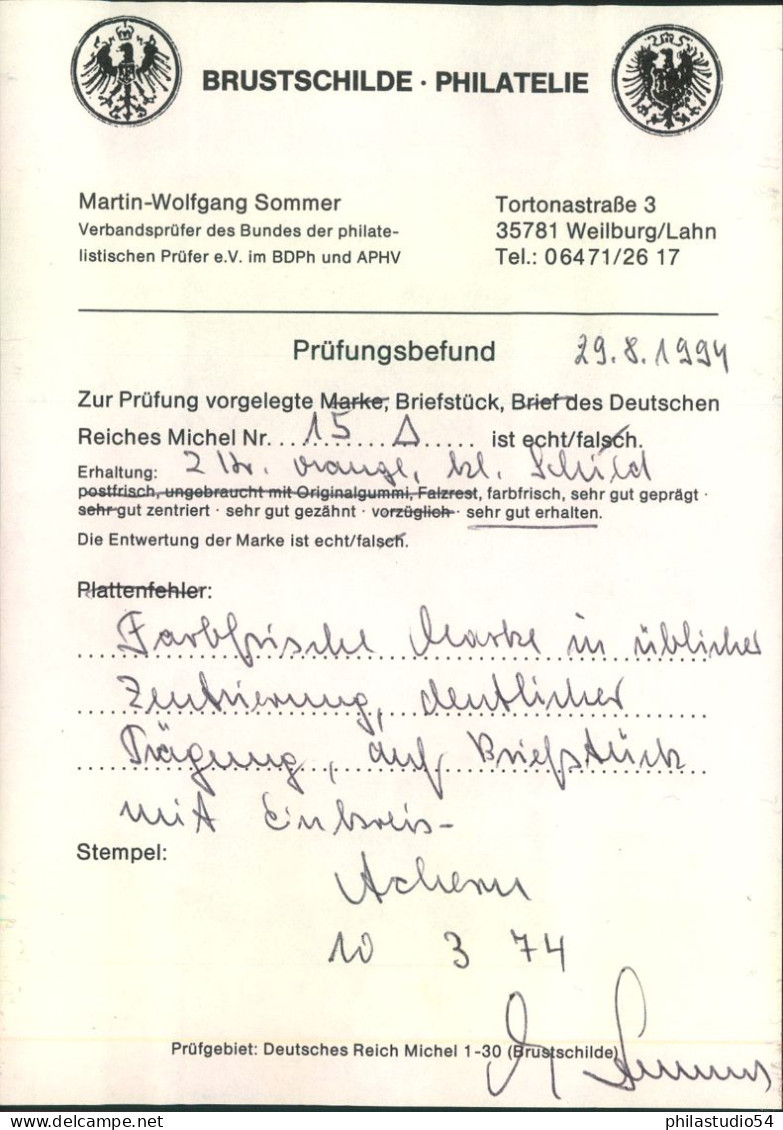 BRUSTSCHILDE · PHILATELIE
Martin-Wolfgang Sommer
Verbandsprüfer des Bundes der philate-
listischen Prüfer e.V. im BDPh und APHV
Tortonastraße 3
35781 Weilburg/Lahn
Tel.: 06471/26 17
Prüfungsbefund 29.8.1994
Zur Prüfung vorgelegte Marke, Briefstück, Brief des Deutschen
Reiches Michel Nr. 15 Δ ist echt/falsch.
Erhaltung: 2 Kr. orange, kl. Schild
postfrisch, ungebraucht mit Originalgummi, Falzrest, farbfrisch, sehr gut geprägt ·
sehr gut zentriert · sehr gut gezähnt · vorzüglich · sehr gut erhalten.
Die Entwertung der Marke ist echt/falsch.
Plattenfehler:
Farbfrische Marke in üblicher
Zentrierung, deutlicher
Prägung, auf Briefstück
mit Einkreis-
Stempel:
Achern
10 3 74
Prüfgebiet: Deutsches Reich Michel 1-30 (Brustschilde)
M Sommer
philastudio54